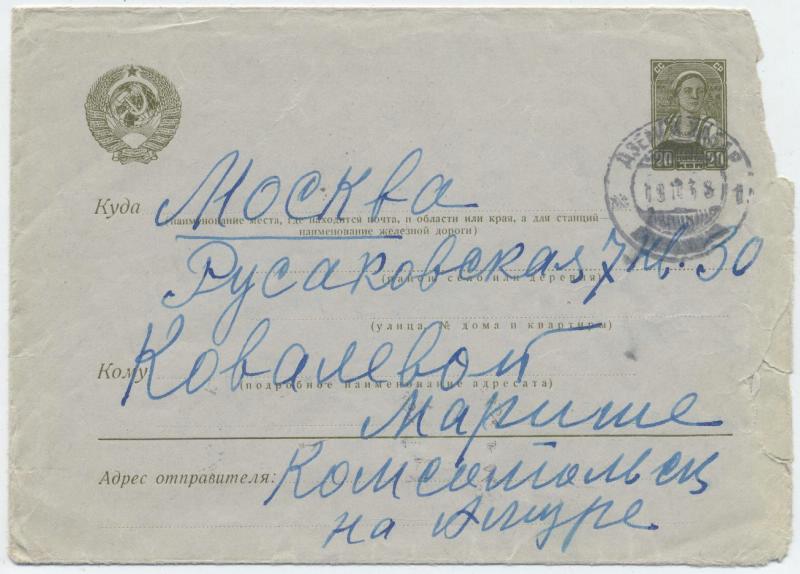 СС СР
20 20
Куда Москва
(наименование места, где находится почта, и области или края, а для станций—
наименование железной дороги)
Русаковская 7 кв. 30
(район, село или деревня)
(улица, № дома и квартиры)
Кому Ковалевой
(подробное наименование адресата)
Марише
Адрес отправителя: Комсомольск
на Амуре.